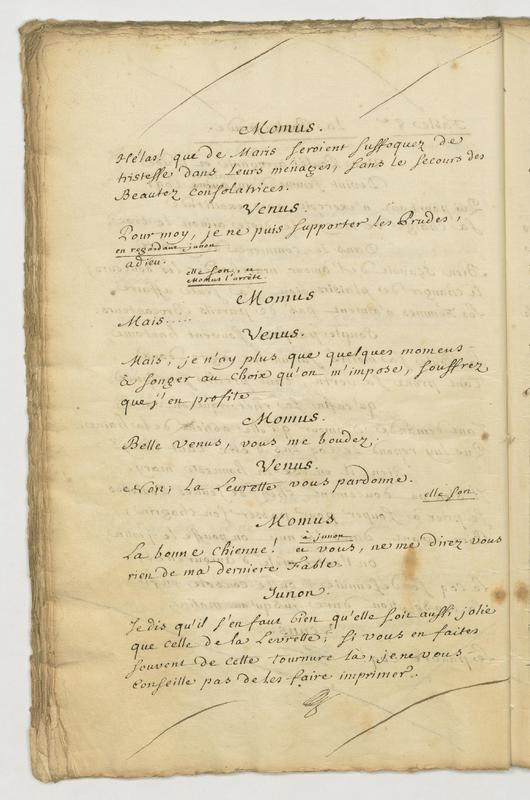 Momus.
Hélas! que de Maris seroient suffoquez de
tristesse dans Leurs ménages, sans le secours des
Beautez Consolatrices.
Venus.
Pour moy, je ne puis supporter les Prudes,
en regardant junon
adieu.
elle sort, et
Momus l'arrête
Momus
Mais.....
Venus.
Mais, je n'ay plus que quelques momens
à songer au Choix qu'on m'impose, souffrez
que j'en profite
Momus.
Belle Venus, vous me boudez,
Venus.
Non; La Levrette vous pardonne.
elle sort.
Momus
à junon
La bonne Chienne! et vous, ne me direz-vous
rien de ma derniere Fable
Junon.
Je dis qu'il s'en faut bien qu'elle soit aussi jolie
que celle de la Levrette; si vous en faites
souvent de cette tournure là, je ne vous
Conseille pas de les faire imprimer.